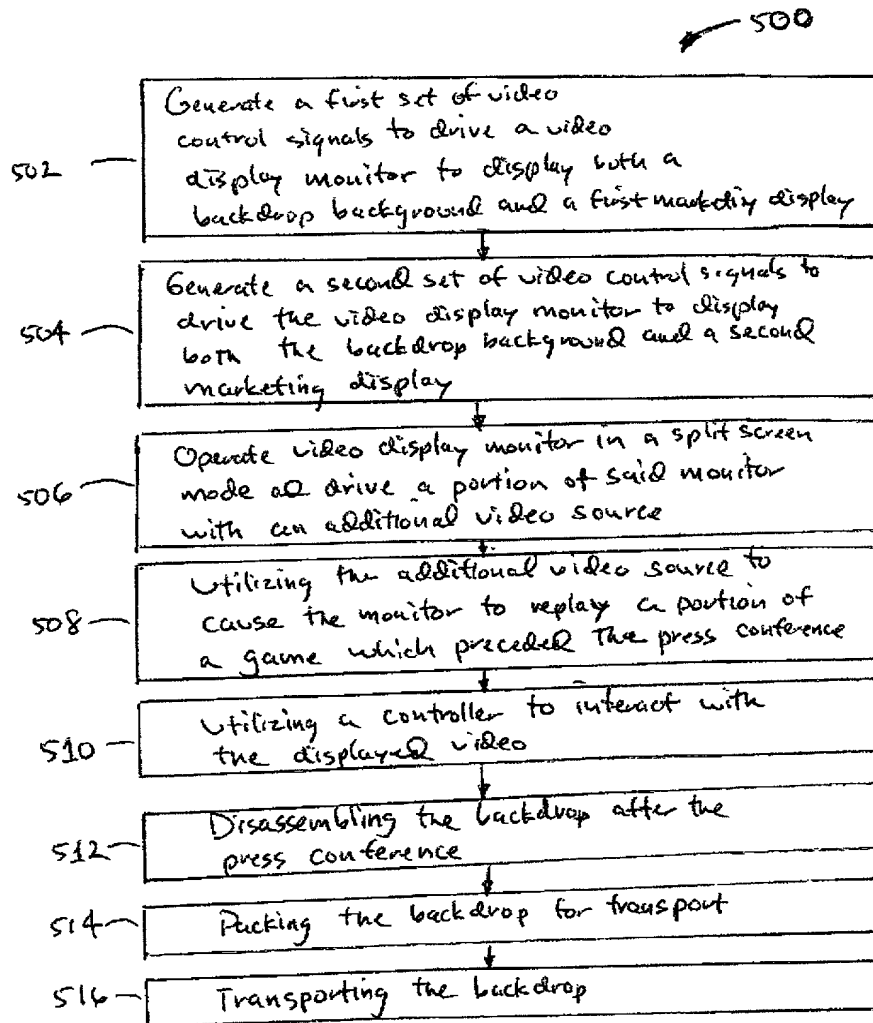 500
502
Generate a first set of video
control signals to drive a video
display monitor to display both a
backdrop background and a first marketing display
504
Generate a second set of video control signals to
drive the video display monitor to display
both the backdrop background and a second
marketing display
506
Operate video display monitor in a split screen
mode ad drive a portion of said monitor
with an additional video source
508
Utilizing the additional video source to
cause the monitor to replay a portion of
a game which preceded the press conference
510
Utilizing a controller to interact with
the displayed video
512
Disassembling the backdrop after the
press conference
514
Packing the backdrop for transport
516
Transporting the backdrop